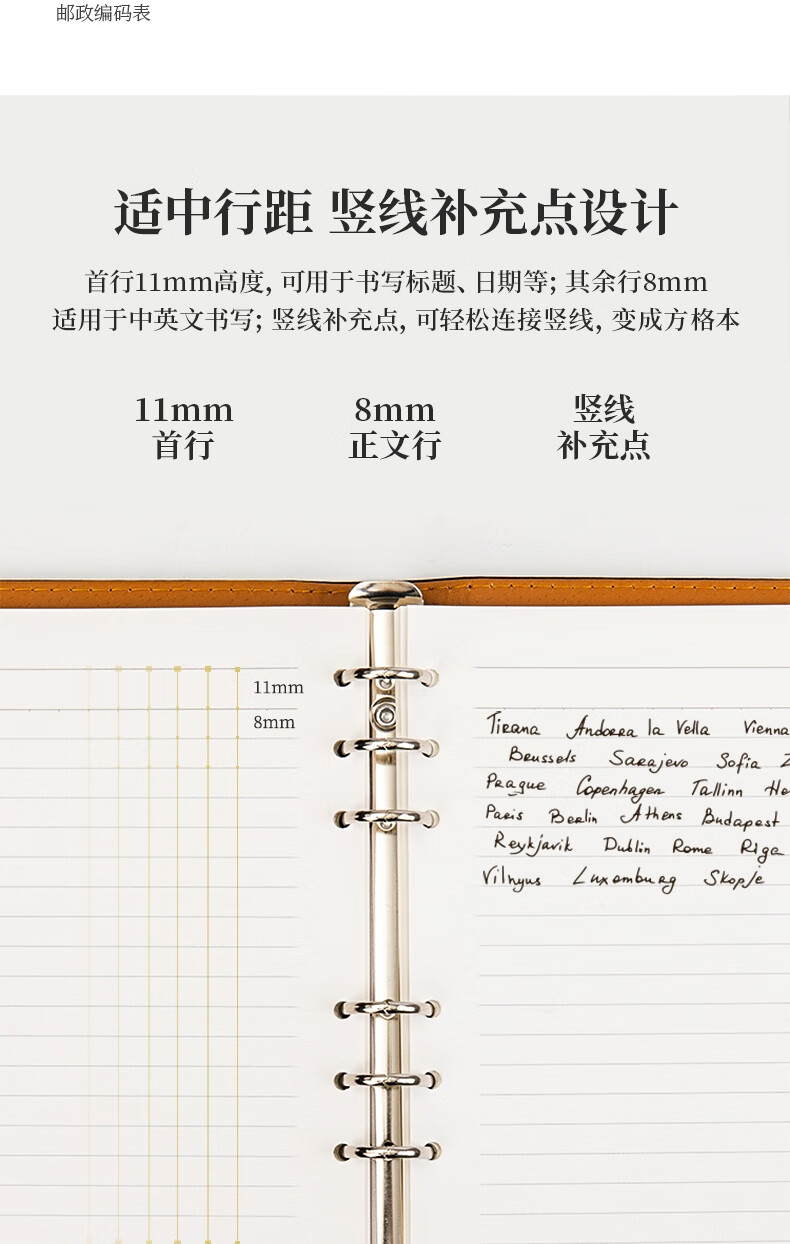 邮政编码表
适中行距 竖线补充点设计
首行11mm高度, 可用于书写标题、日期等; 其余行8mm
适用于中英文书写; 竖线补充点, 可轻松连接竖线, 变成方格本
11mm 8mm 竖线
首行 正文行 补充点
11mm
8mm
Tirana Andorra la Vella Vienna
Brussels Sarajevo Sofia Z
Prague Copenhagen Tallinn He
Paris Berlin Athens Budapest
Reykjavik Dublin Rome Riga
Vilnyus Luxemburg Skopje